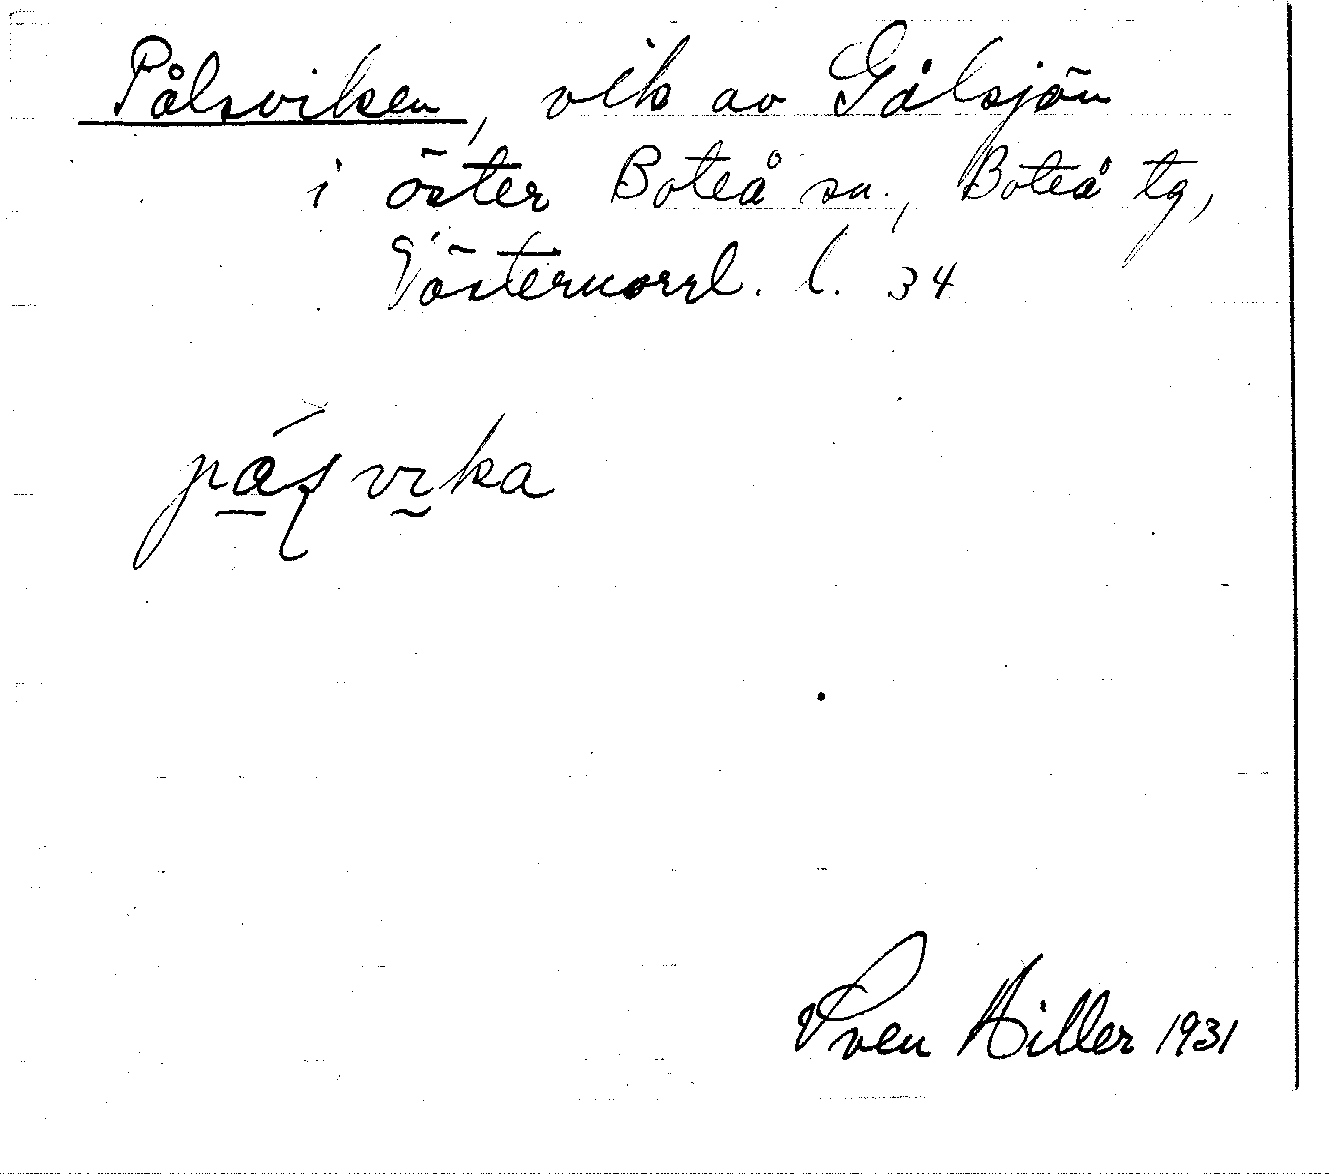 Pålsviken, vik av Gålsjön
i öster Boteå sn., Boteå tg,
Västernorrl. l. 34
Sven Hiller 1931